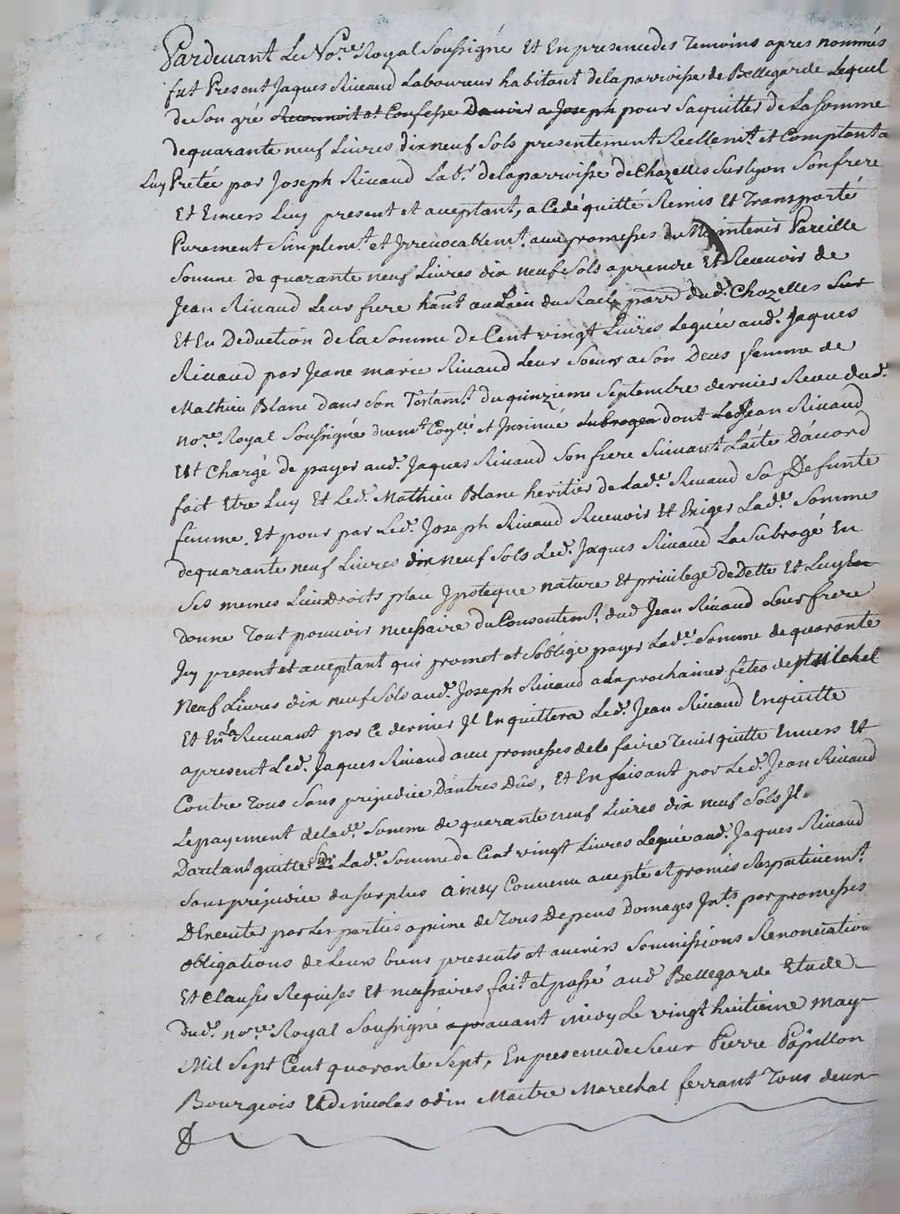 Pardevant Le No.re Royal Soussigné Et En presence des Temoins apres nommés
fut Present Jaques Rivaud Laboureur habitant de la parroisse de Bellegarde Lequel
de Son gré Reconnoit et Confesse Devoir a Joseph pour Saquitter de La Somme
de quarante neuf Livres dix neuf Sols presentement Reellem.t et Comptant a
Luy Pretée par Joseph Rivaud Lab.r de la parroisse de Chazelles Sur Lyon Son frere
Et Envers Luy present et aceptant, a Cedé quitté Remis Et Transporté
Purement Simplem.t et Irrevocablem.t avec promesses de Maintenir Pareille
Somme de quarante neuf Livres dix neuf Sols aprendre Et Recevoir de
Jean Rivaud Leur frere hant au Lieu du parr.e dud. Chazelles Sur
Et En Deduction de la Somme de Cent vingt Livres Leguée aud. Jaques
Rivaud par Jeane marie Rivaud Leur Soeur a Son Deces femme de
Mathieu Blanc dans Son Testam.t du quinzieme Septembre dernier Receu dud.
no.re Royal Soussignée duem.t Conllé et Insinué Subroger dont Led. Jean Rivaud
Est Chargé de payer aud. Jaques Rivaud Son frere Suivant Laite Dacord
fait Etre Luy Et Led. Mathieu Blanc heritier de Lad.e Rivaud Sa Defunte
femme. Et pour par Led. Joseph Rivaud Recevoir Et Exiger Lad.e Somme
de quarante neuf Livres dix neuf Sols Led. Jaques Rivaud La Subrogé En
Ses memes Lieu Droits place Ipoteque nature Et privilege de Dette Et Luy
donne Tout pouvoir necessaire du Consentem.t dud Jean Rivaud Leur frere
Icy present et aceptant qui promet et Soblige payer Lad.e Somme de quarante
Neuf Livres dix neuf Sols aud. Joseph Rivaud aux prochaines fetes de St Michel
Et En La Recevant par Ce dernier Il En quittera Led. Jean Rivaud En quitte
apresent Led. Jaques Rivaud avec promesses de le faire Tenir quitte Envers Et
Contre Tous Sans prejudice Dautres Dûs, Et En faisant par Led. Jean Rivaud
Le payement de lad.e Somme de quarante neuf Livres dix neuf Sols Il.
Dautant quitte Sur Lad.e Somme de Cent vingt Livres Leguée aud. Jaques Rivaud
Sans prejudice du Surplus ainsy Convenu accepté et promis Respectivem.t
D'Executer par Les parties a peine de Tous Depens Domages Int.s par promesses
obligations de Leurs biens presents et avenirs Soumissions Renonciation
Et Clauses Requises Et necessaires fait et passé aud Bellegarde Etude
Dud. no.re Royal Soussigné avant midy Le vingt huitieme may
Mil Sept Cent quarante Sept, En presence de Sieur Pierre Papillon
Bourgeois Et de nicolas odin Maitre Marechal ferrant Tous deux